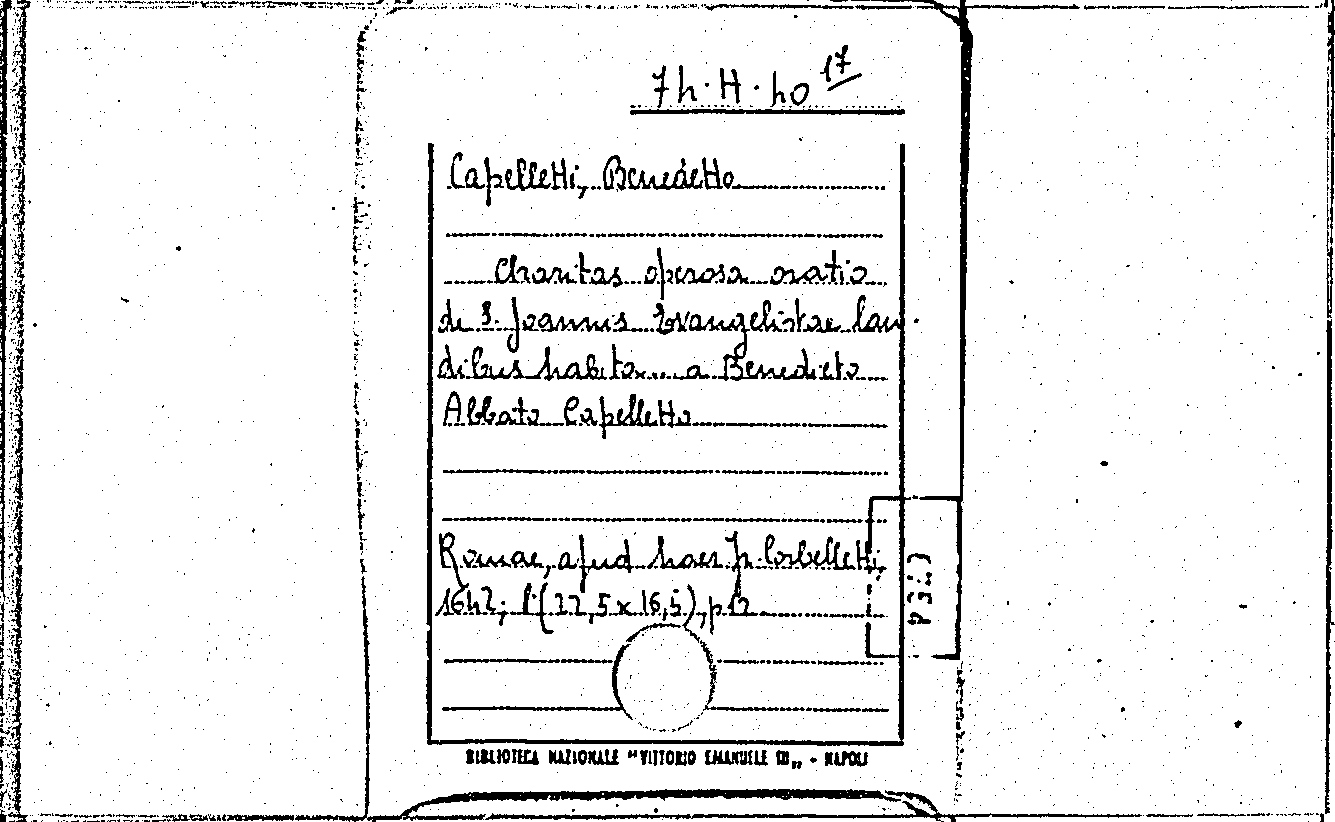 74.H.40 17
Capelletti, Benedetto
Charitas operosa oratio
de S. Joannis Evangelistae lau-
dibus habita... a Benedicto
Abbate Capelletto
Romae, apud haer. Corbelletti,
1642; (22,5x16,5), p.12
BIBLIOTECA NAZIONALE "VITTORIO EMANUELE III" - NAPOLI